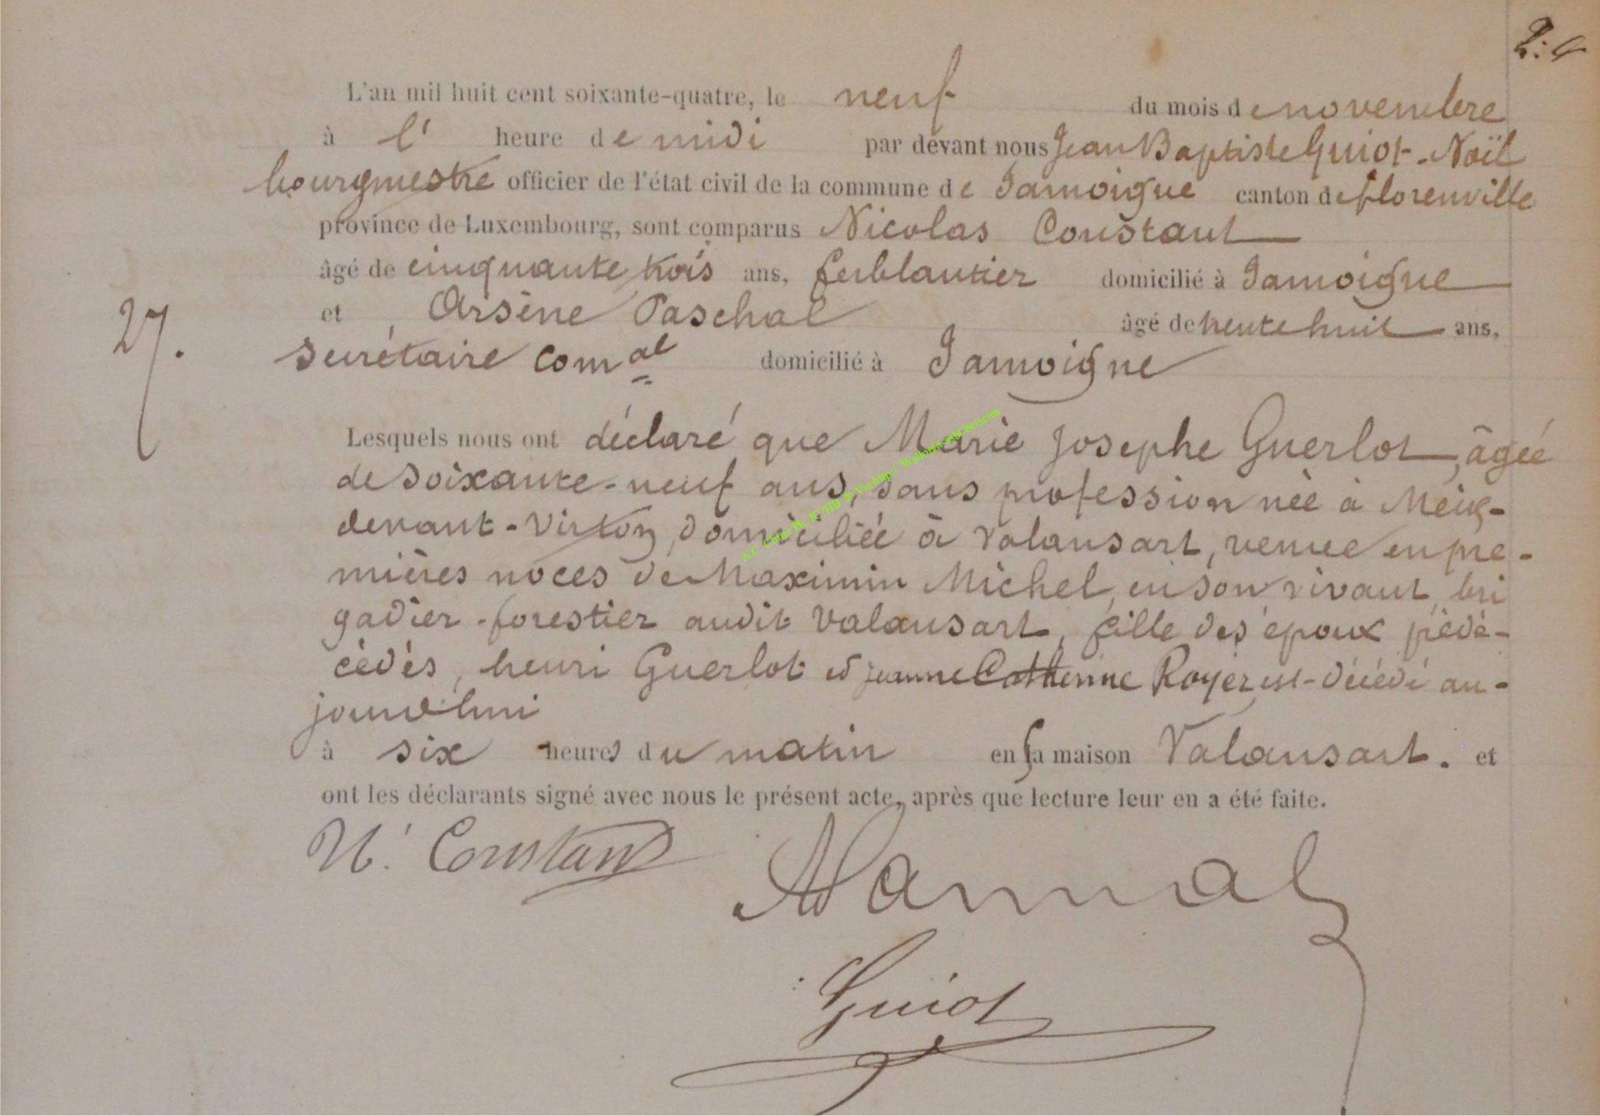 2:4
L'an mil huit cent soixante-quatre, le neuf du mois de novembre
à l' heure de midi par devant nous Jean Baptiste Guiot-Noël
bourgmestre officier de l'état civil de la commune de Jamoigne canton de florenville
province de Luxembourg, sont comparus Nicolas Constant
âgé de cinquante trois ans, ferblantier domicilié à Jamoigne
et Arsène Paschal âgé de trente huit ans,
27.
secrétaire comal domicilié à Jamoigne
Lesquels nous ont déclaré que Marie Josephe Guerlot, âgée
de soixante-neuf ans, sans profession née à Meix-
devant-Virton, domiciliée à Valansart, veuve en pre-
mières noces de Maximin Michel, en son vivant, bri
gadier-forestier audit Valansart, fille des époux prédé-
cédés, henri Guerlot et jeanne Catherine Royer est décédé au-
jourdhui
à six heures du matin en sa maison Valansart. et
ont les déclarants signé avec nous le présent acte, après que lecture leur en a été faite.
N. Constant
Guiot